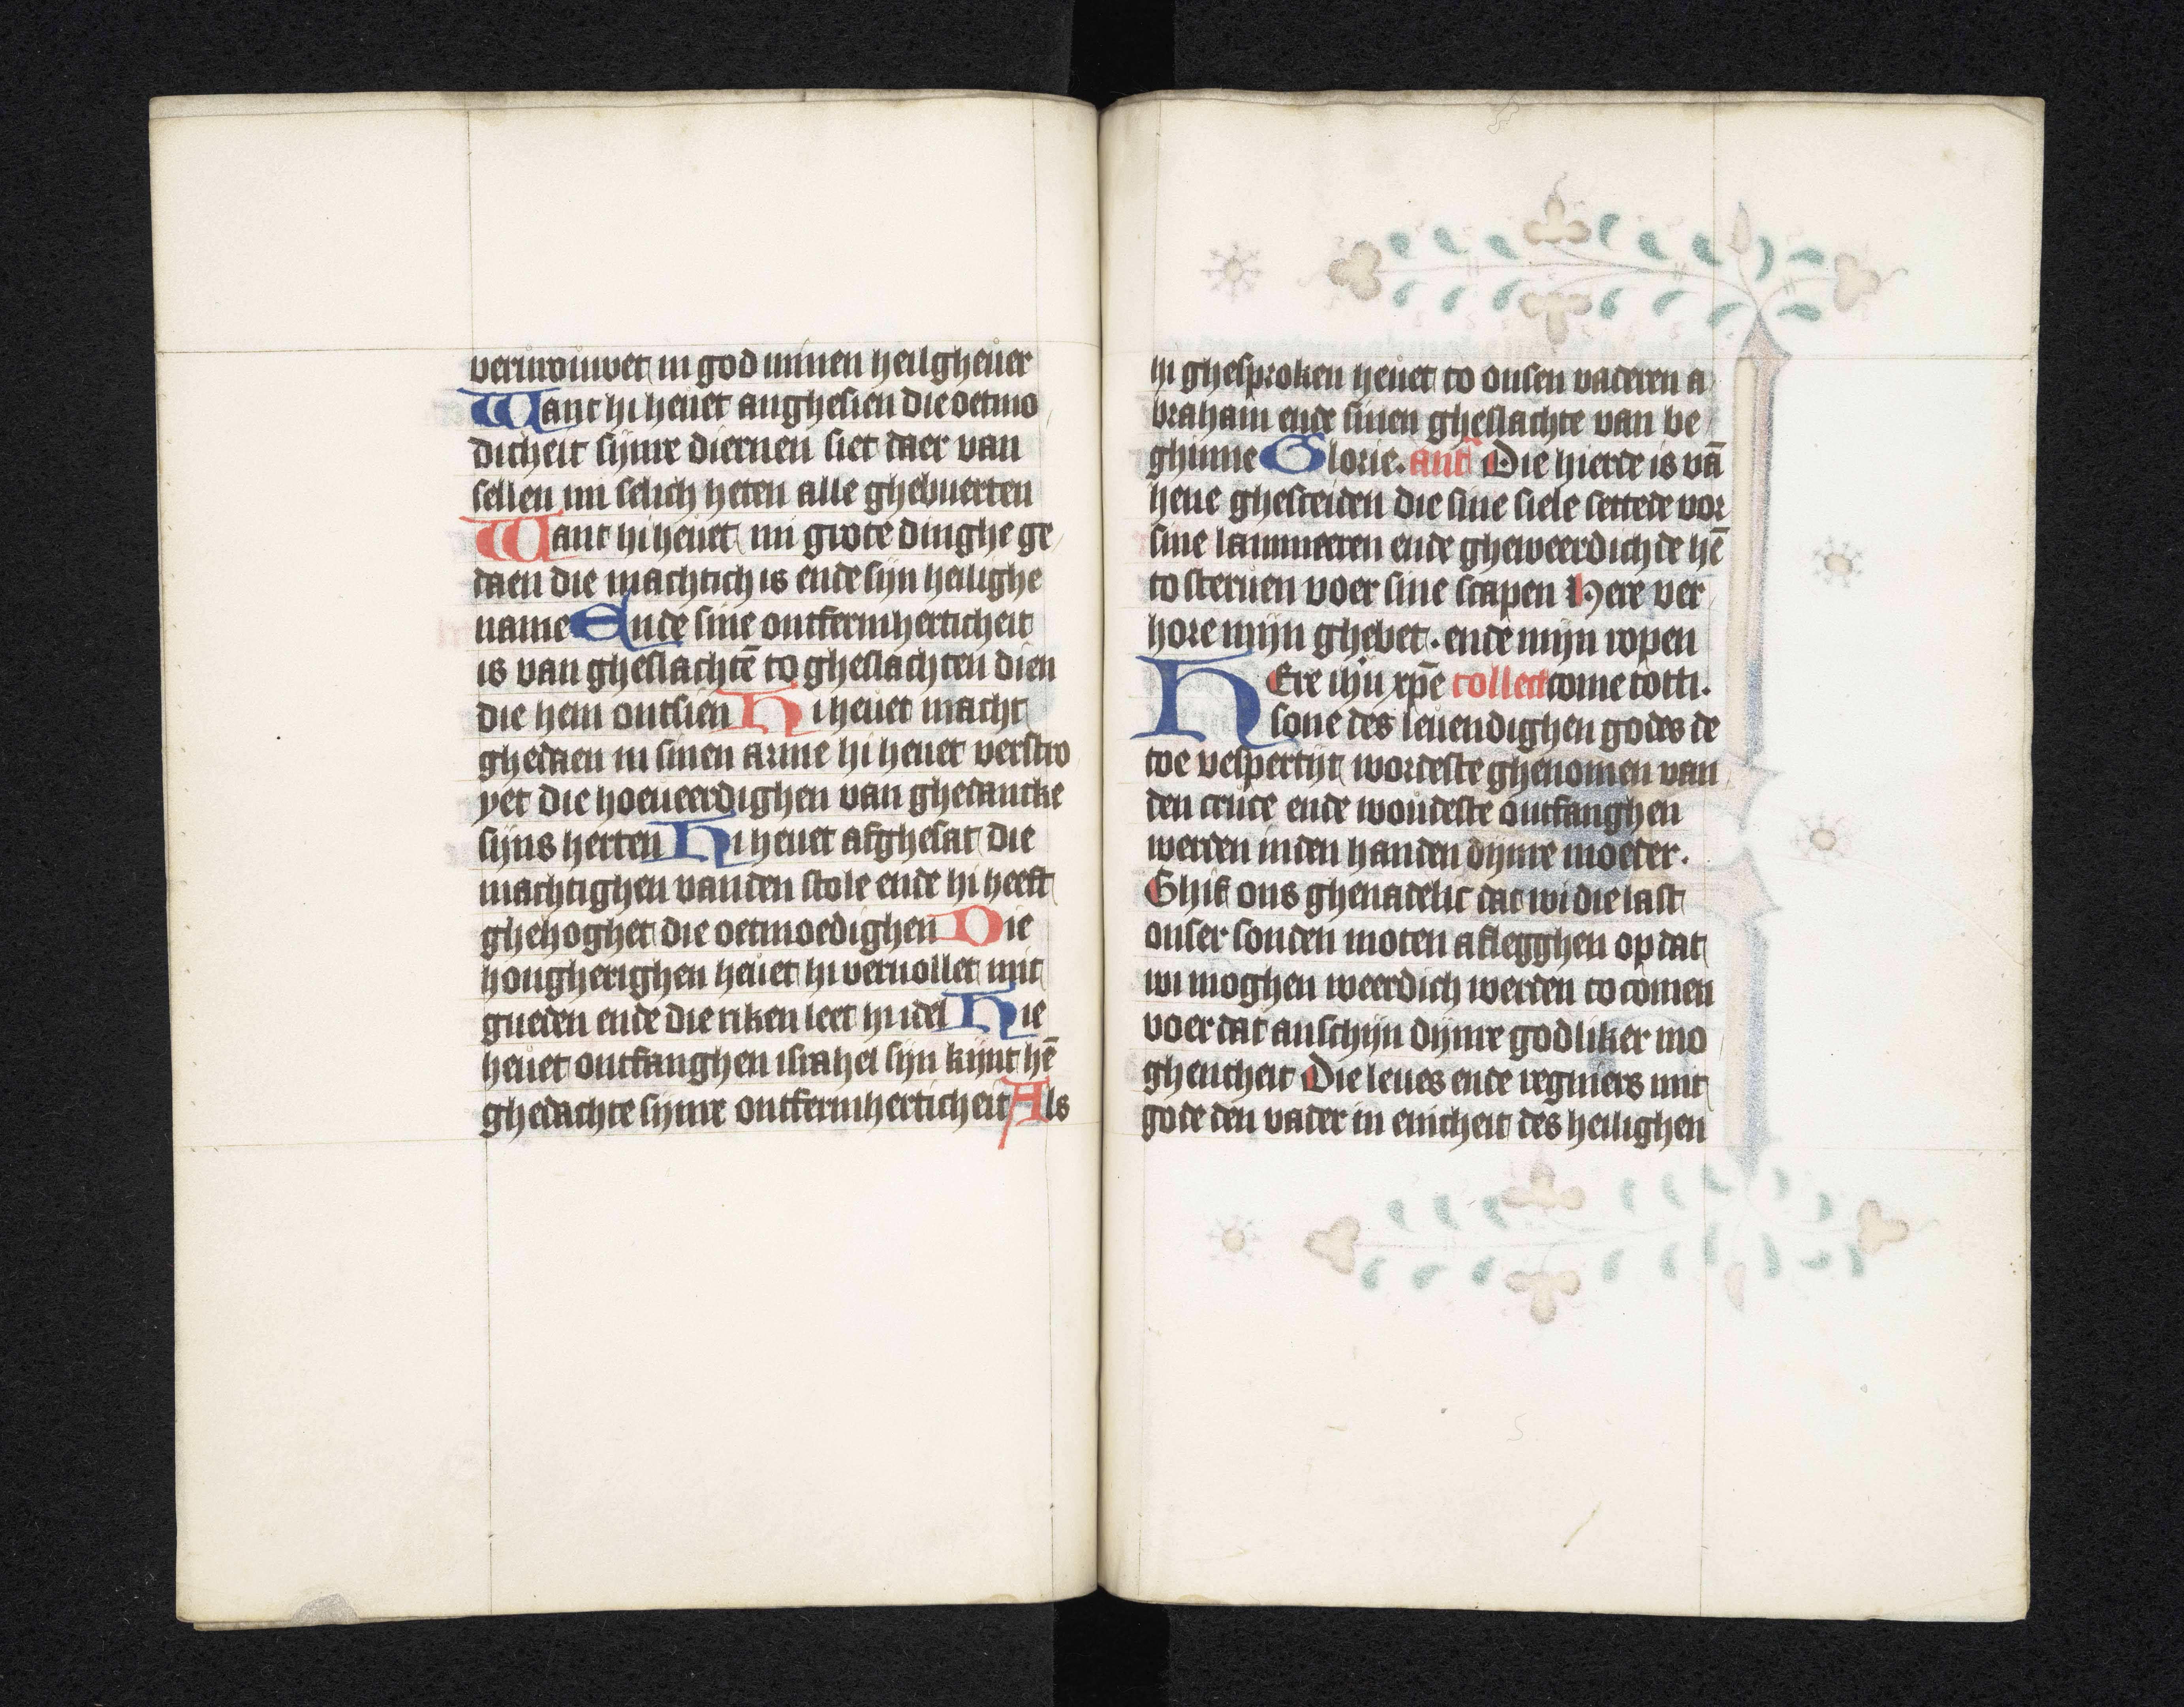 vertwouwet in god minen heilgheuer
Want hi heuet anghesien die oetmo
dicheit sijnre diernen siet daer van
sellen mi selich heten alle ghebuerten
Want hi heuet mi grote dinghe ge
daen die machtich is ende sijn heilighe
name Ende sine ontfermherticheit
is van gheslachtē to gheslachten dien
die hem ontsien Hi heuet macht
ghedaen in sinen arme hi heuet verstro
yet die hoeueerdighen van ghedancke
sijns herten Hi heuet afghesat die
machtighen vanden stole ende hi heeft
ghehoghet die oetmoedighen Die
hongherighen heuet hi veruollet mit
gueden ende die riken leet hi idel Hie
heuet ontfanghen israhel sijn kijnt hē
ghedachte sijnre ontfermherticheit Als
hi ghesproken heuet to onsen vaderen a
braham ende sinen gheslachte van be
ghinne Glorie. anī Die hierde is vā
hene ghesceiden die sine siele settede vor
sine lammeren ende gheweerdichde hē
to steruen voer sine scapen Here ver
hore mijn ghebet. ende mijn ropen
HEre ihū xpē collect come totti.
sone des leuendighen godes de
toe vespertijt wordeste ghenomen van
den cruce ende woudeste ontfanghen
werden inden handen dijnre moeder.
Ghif ons ghenadelic dat wi die last
onser sonden moten aflegghen op dat
wi moghen weerdich werden to comen
voer dat anschijn dijnre godliker mo
ghentheit Die leues ende regniers mit
gode den vader in einicheit des heilighen